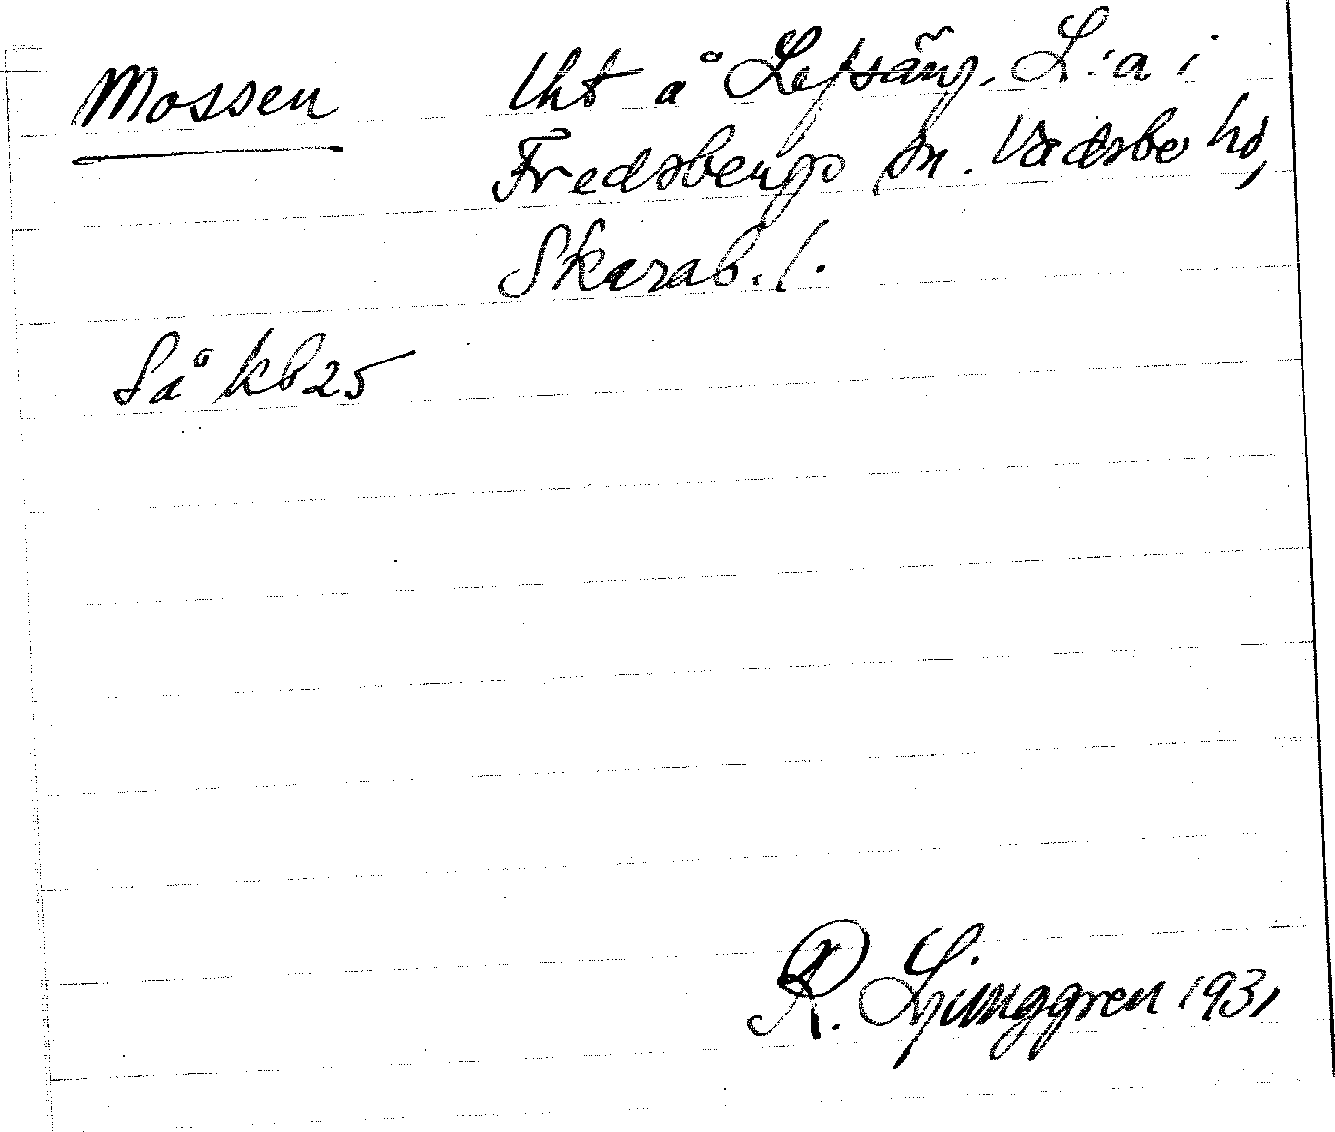 Mossen
lht å Lefsäng. L:a i
Fredsbergs sn. Vadsbo hd,
Skarab. l.
Så kb 25
R. Ljunggren 1931